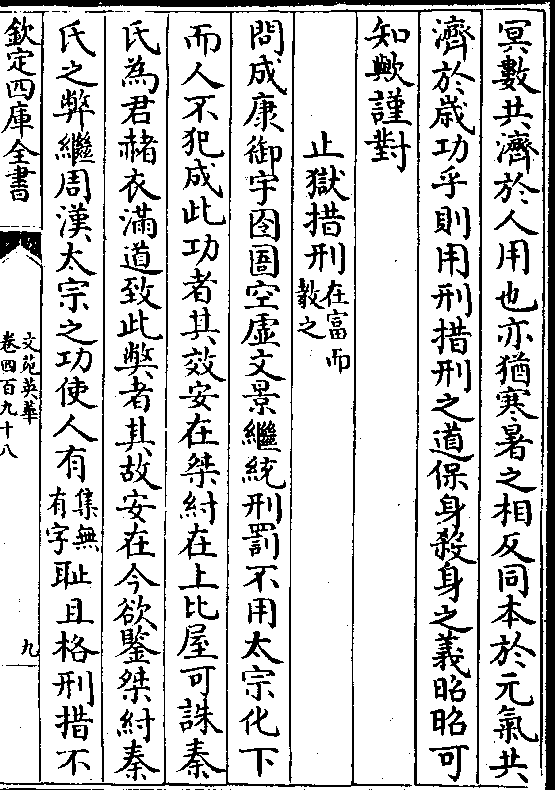 冥數共濟於人用也亦猶寒暑之相反同本於元氣共
濟於歳功乎則用刑措刑之道保身殺身之義昭昭可
知歟謹對
止獄措刑在富而教之
問成康御宇囹圄空虛文景繼統刑罰不用太宗化下
而人不犯成此功者其效安在桀紂在上比屋可誅秦
氏為君赭衣滿道致此弊者其故安在今欲鑒桀紂秦
氏之弊繼周漢太宗之功使人有集無有字恥且格刑措不
欽定四庫全書
文苑英華
卷四百九十八
九